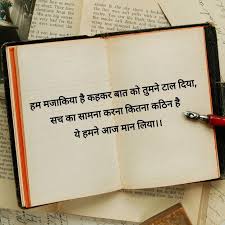 हम मजाकिया है कहकर बात को तुमने टाल दिया,
सच का सामना करना कितना कठिन है
ये हमने आज मान लिया।।